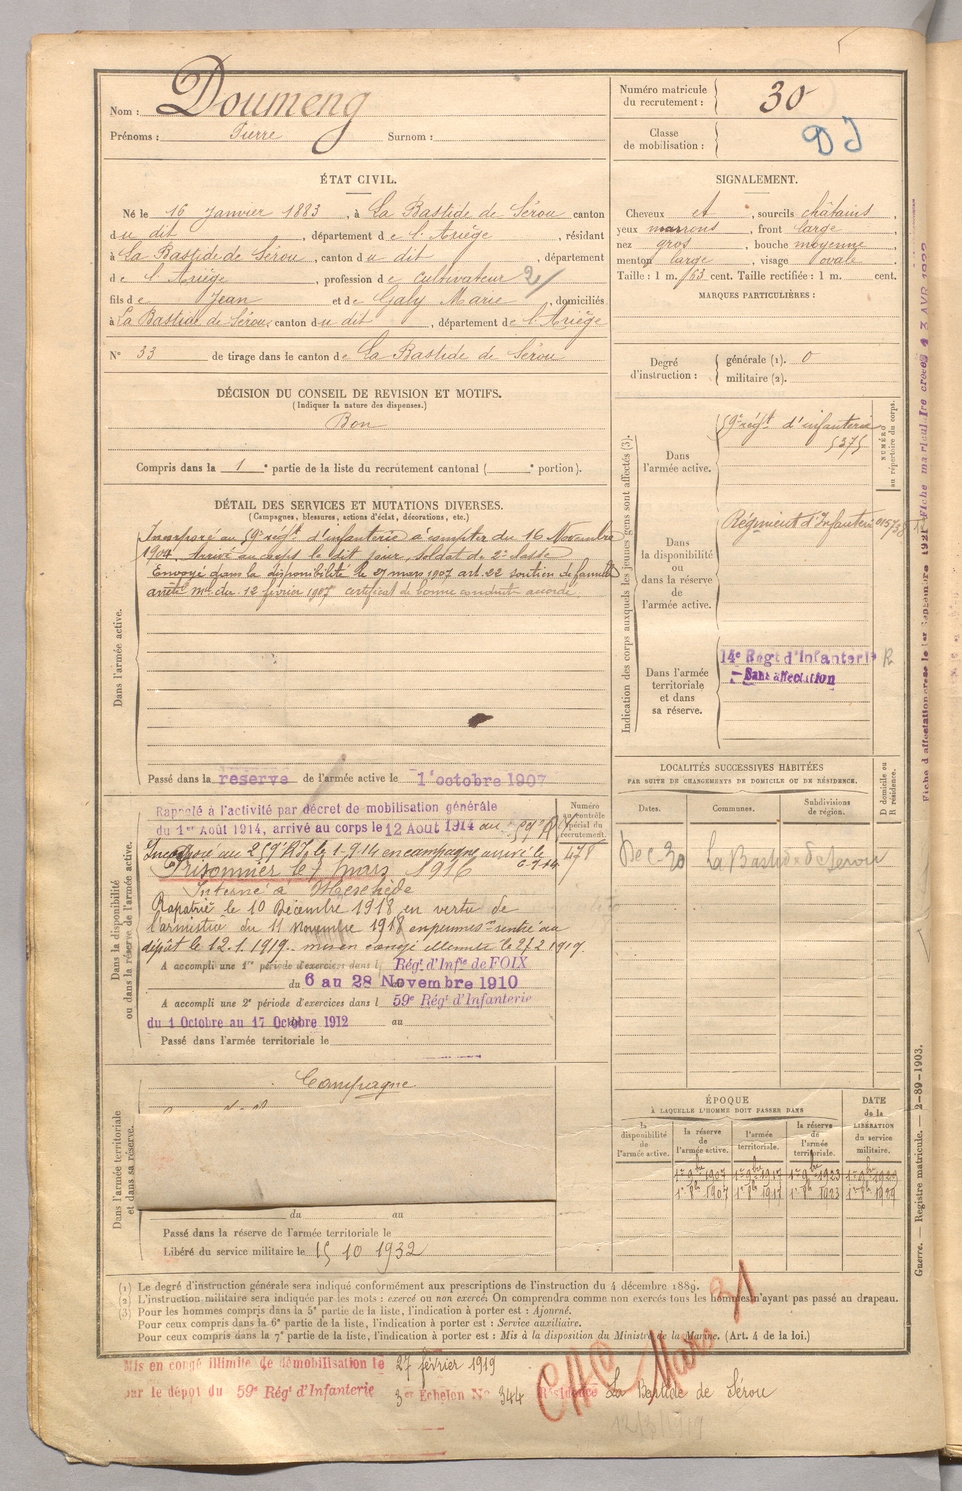 Nom : Doumeng
Prénoms : Pierre Surnom :
Numéro matricule du recrutement : 30
Classe de mobilisation :
ÉTAT CIVIL.
Né le 16 Janvier 1883, à La Bastide de Sérou canton
du dit, département de l'Ariège, résidant
à La Bastide de Sérou, canton du dit, département
de l'Ariège, profession de cultivateur 2
fils de Jean et de Galy Marie, domiciliés
à La Bastide de Sérou, canton du dit, département de l'Ariège
N° 33 de tirage dans le canton de La Bastide de Sérou
SIGNALEMENT.
Cheveux et, sourcils châtains,
yeux marrons, front large,
nez gros, bouche moyenne,
menton large, visage ovale.
Taille : 1 m. 63 cent. Taille rectifiée : 1 m. cent.
MARQUES PARTICULIÈRES :
Degré d'instruction :
générale (1). 0
militaire (2).
DÉCISION DU CONSEIL DE REVISION ET MOTIFS.
(Indiquer la nature des dispenses.)
Bon
Compris dans la 1e partie de la liste du recrutement cantonal ( e portion).
DÉTAIL DES SERVICES ET MUTATIONS DIVERSES.
(Campagnes, blessures, actions d'éclat, décorations, etc.)
Dans l'armée active.
Incorporé au 59e régt d'infanterie à compter du 16 Novembre
1904. Arrivé au corps le dit jour, soldat de 2e classe
Envoyé dans la disponibilité le 27 mars 1907 art. 22 soutien de famille
arrêté mel du 12 février 1907 certificat de bonne conduite accordé.
Passé dans la réserve de l'armée active le 1 octobre 1907
Dans la disponibilité ou dans la réserve de l'armée active.
Rappelé à l'activité par décret de mobilisation générale
du 1er Août 1914, arrivé au corps le 12 Août 1914 au 59e R
Incorporé au 259 RI le 1-9-14 en campagne arrivé le
6-9-14
Prisonnier le 7 mars 1916
Interné à Meschede
Rapatrié le 10 Décembre 1918 en vertu de
l'armistice du 11 Novembre 1918 rentré au
dépôt le 12.1.1919. mis en congé illimité le 27 2 1919.
A accompli une 1re période d'exercices dans l Régt. d'Infie de FOIX
du 6 au 28 Novembre 1910
A accompli une 2e période d'exercices dans l 59e Régt d'Infanterie
du 1 Octobre au 17 Octobre 1912 au
Passé dans l'armée territoriale le
Numéro au contrôle spécial du recrutement.
478
Dans l'armée territoriale et dans sa réserve.
Campagne
du au
Passé dans la réserve de l'armée territoriale le
Libéré du service militaire le 15 10 1932
Indication des corps auxquels les jeunes gens sont affectés (3).
NUMÉRO au répertoire du corps.
Dans l'armée active.
59e régt d'infanterie
5275
Dans la disponibilité ou dans la réserve de l'armée active.
Régiment d'Infanterie
Dans l'armée territoriale et dans sa réserve.
14e Régt d'Infanterie R
Sans affectation
LOCALITÉS SUCCESSIVES HABITÉES
PAR SUITE DE CHANGEMENTS DE DOMICILE OU DE RÉSIDENCE.
D domicile ou R résidence.
Dates. Communes. Subdivisions de région.
Dec-30 La Bastide de Serou
ÉPOQUE
À LAQUELLE L'HOMME DOIT PASSER DANS
DATE de la LIBÉRATION du service militaire.
la disponibilité de l'armée active. la réserve de l'armée active. l'armée territoriale. la réserve de l'armée territoriale.
1er 9bre 1907 1er 9bre 1917 1er 9bre 1923 1er 9bre 1929
1er 8bre 1907 1er 8bre 1917 1er 8bre 1923 1er 8bre 1929
(1) Le degré d'instruction générale sera indiqué conformément aux prescriptions de l'instruction du 4 décembre 1889.
(2) L'instruction militaire sera indiquée par les mots : exercé ou non exercé. On comprendra comme non exercés tous les hommes n'ayant pas passé au drapeau.
(3) Pour les hommes compris dans la 5e partie de la liste, l'indication à porter est : Ajourné.
Pour ceux compris dans la 6e partie de la liste, l'indication à porter est : Service auxiliaire.
Pour ceux compris dans la 7e partie de la liste, l'indication à porter est : Mis à la disposition du Ministre de la Marine. (Art. 4 de la loi.)
Mis en congé illimité de démobilisation le 27 février 1919
par le dépôt du 59e Régt d'Infanterie 3er Échelon N° 344 Résidence La Bastide de Sérou
Mars 31
Guerre. — Registre matricule. — 2-89-1903.